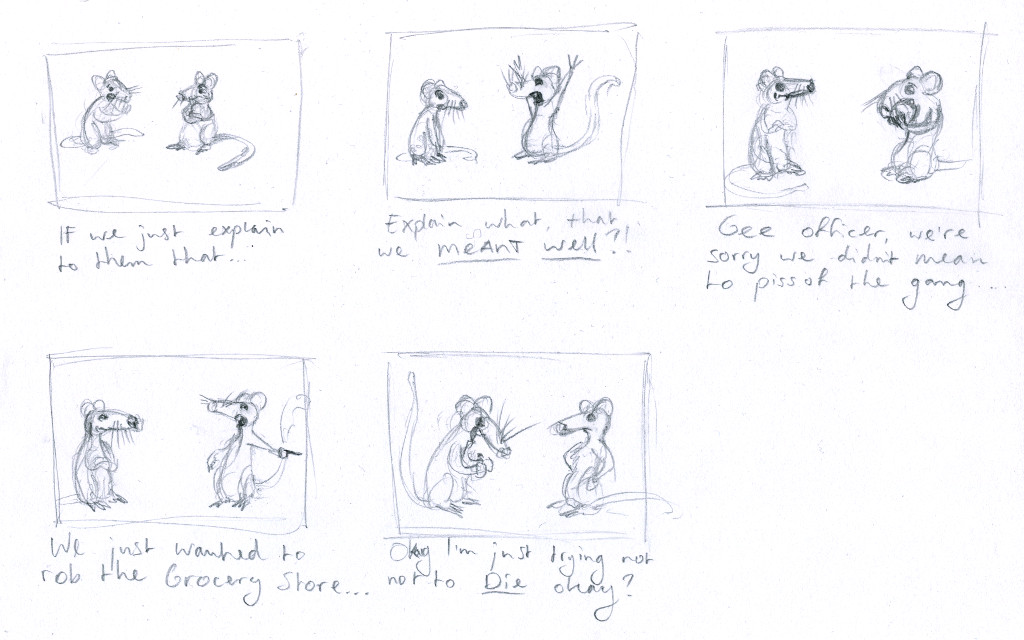 If we just explain
to them that...
Explain what, that..
we MEANT well?!
Gee officer, we're
sorry we didn't mean
to piss of the gang...
We just wanted to
rob the Grocery Store...
Okay I'm just trying not
not to Die okay?